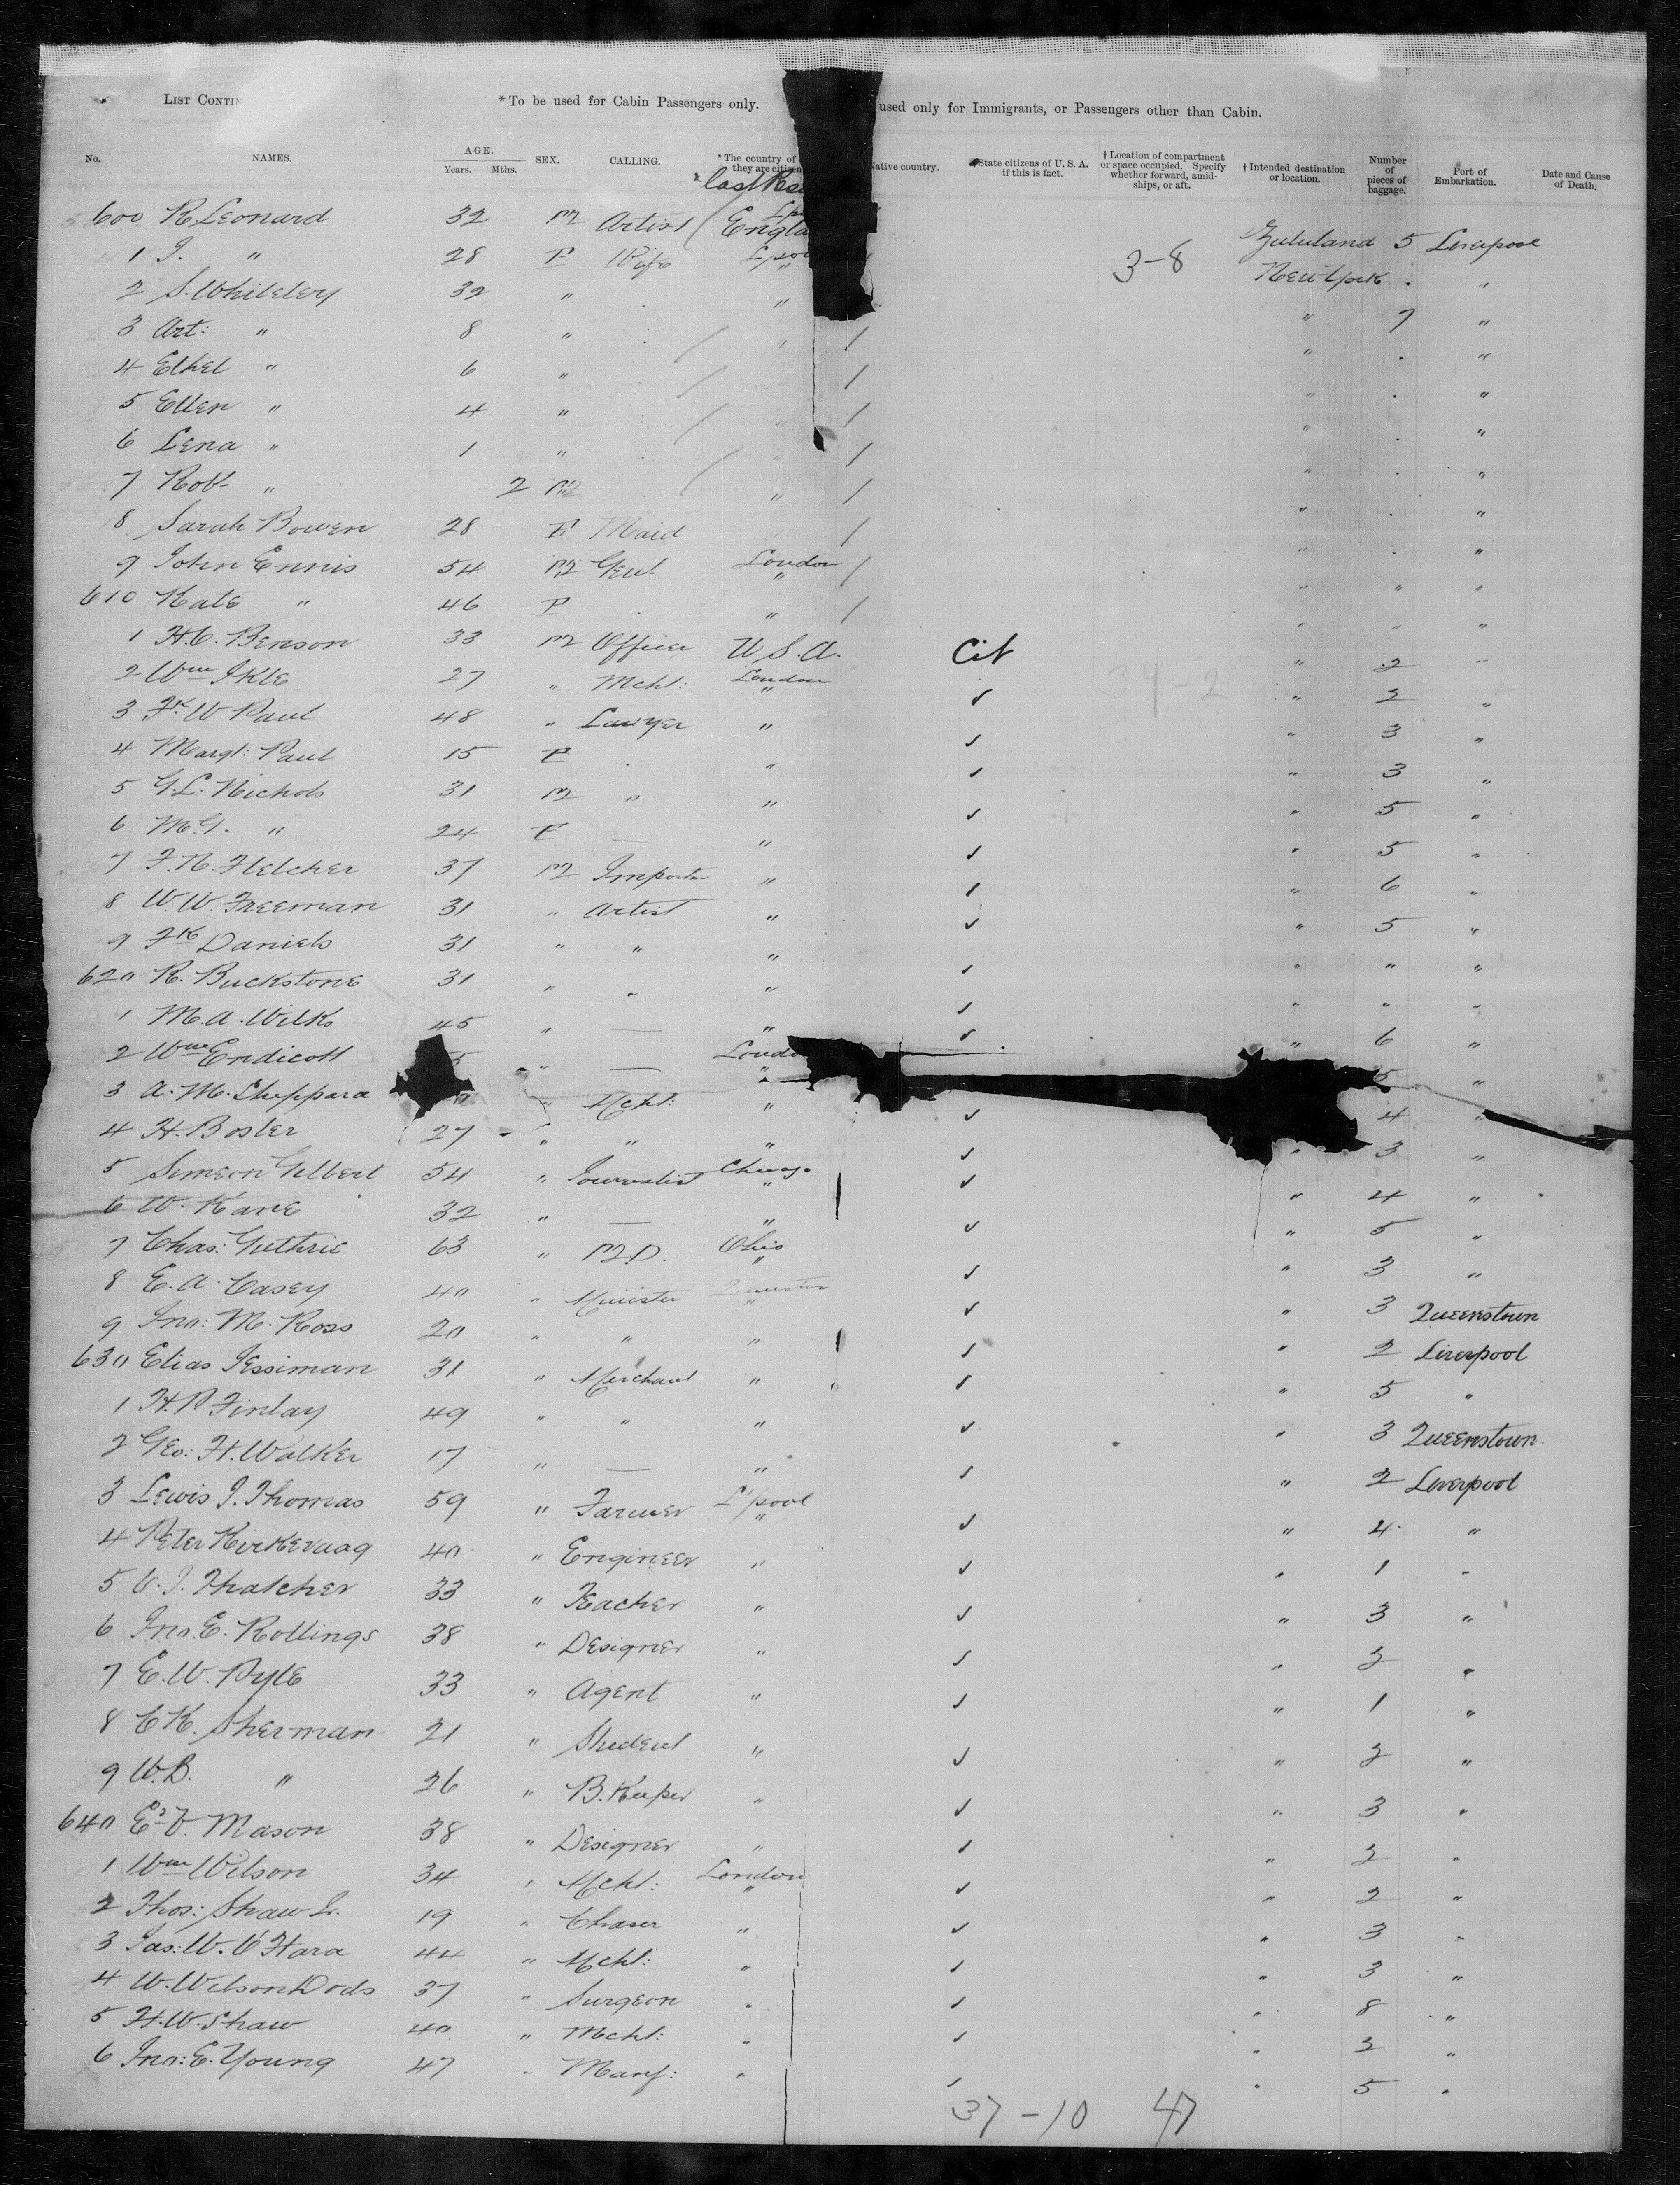 LIST CONTIN
*To be used for Cabin Passengers only.
used only for Immigrants, or Passengers other than Cabin.
No. NAMES. AGE. Years. Mths. SEX. CALLING. *The country of they are citizen last Resi Native country. State citizens of U. S. A. if this is fact. † Location of compartment or space occupied. Specify whether forward, amidships, or aft. † Intended destination or location. Number of pieces of baggage. Port of Embarkation. Date and Cause of Death.
600 R. Leonard 32 M Artist England Zululand 5 Liverpool
1 J. " 28 F Wife L'pool " 3-8 New York . "
2 S. Whiteley 32 " . " " 7 "
3 Art: " 8 " . / " / " . "
4 Ethel " 6 " / / " . "
5 Ellen " 4 " / " / " . "
6 Lena " 1 " . " / " . "
7 Robt " 2 M . / " / " . "
8 Sarah Bowen 28 F Maid / " . "
9 John Ennis 54 M Gent London " / " " "
610 Kate " 46 F . " / " " "
1 H.C. Benson 33 M Officer U.S.A. Cit " 2 "
2 Wm Ikle 27 " Mcht: London " ✓ 34-2 " 2 "
3 Fk W Paul 48 " Lawyer " ✓ " 3 "
4 Margt: Paul 15 F . " ✓ " 3 "
5 G.L. Nichols 31 M " " ✓ " 5 "
6 M.G. " 24 F — " ✓ " 5 "
7 F.N. Fletcher 37 M Importer " ✓ " 6 "
8 W.W. Freeman 31 " Artist " ✓ " 5 "
9 Fk Daniels 31 " " " ✓ " " "
620 R. Buckstone 31 " " " ✓ " " "
1 M.A. Wilks 45 " — " ✓ " 6 "
2 Wm Endicott 5 " — Londo " 5 "
3 A. M. Sheppard " Mcht: " ✓ 4 "
4 H. Bosler 27 " " " ✓ " 3 "
5 Simeon Gilbert 54 " Journalist Chicago " ✓ " 4 "
6 W. Kane 32 " — " ✓ " 5 "
7 Chas: Guthrie 63 " M.D. Ohio " ✓ " 3 "
8 E. A. Casey 40 " Minister " ✓ " 3 Queenstown
9 Jno: M. Ross 20 " " " ✓ " 2 Liverpool
630 Elias Jessiman 31 " Merchant " ✓ " 5 "
1 H. P Finlay 49 " " " ✓ " 3 Queenstown
2 Geo: H. Walker 17 " — " ✓ " 2 Liverpool
3 Lewis J. Thomas 59 " Farmer L'pool " ✓ " 4 "
4 Peter Kirkevaag 40 " Engineer " ✓ " 1 "
5 O. J. Thatcher 33 " Teacher " ✓ " 3 "
6 Jno. E. Rollings 38 " Designer " ✓ " 2 "
7 E. W. Pyle 33 " Agent " ✓ " 1 "
8 C K. Sherman 21 " Student " ✓ " 2 "
9 W. B. " 26 " B. Keeper " ✓ " 3 "
640 Ed V. Mason 38 " Designer " ✓ " 2 "
1 Wm Wilson 34 " Mcht: London " ✓ " 2 "
2 Thos: Shaw Jr. 19 " Chaser " ✓ " 3 "
3 Jas: W. O'Hara 44 " Mcht: " ✓ " 3 "
4 W. Wilson Dods 37 " Surgeon " ✓ " 8 "
5 H. W. Shaw 40 " Mcht: " ✓ " 2 "
6 Jno: E. Young 47 " Manf: " ✓ " 5 "
37-10 47